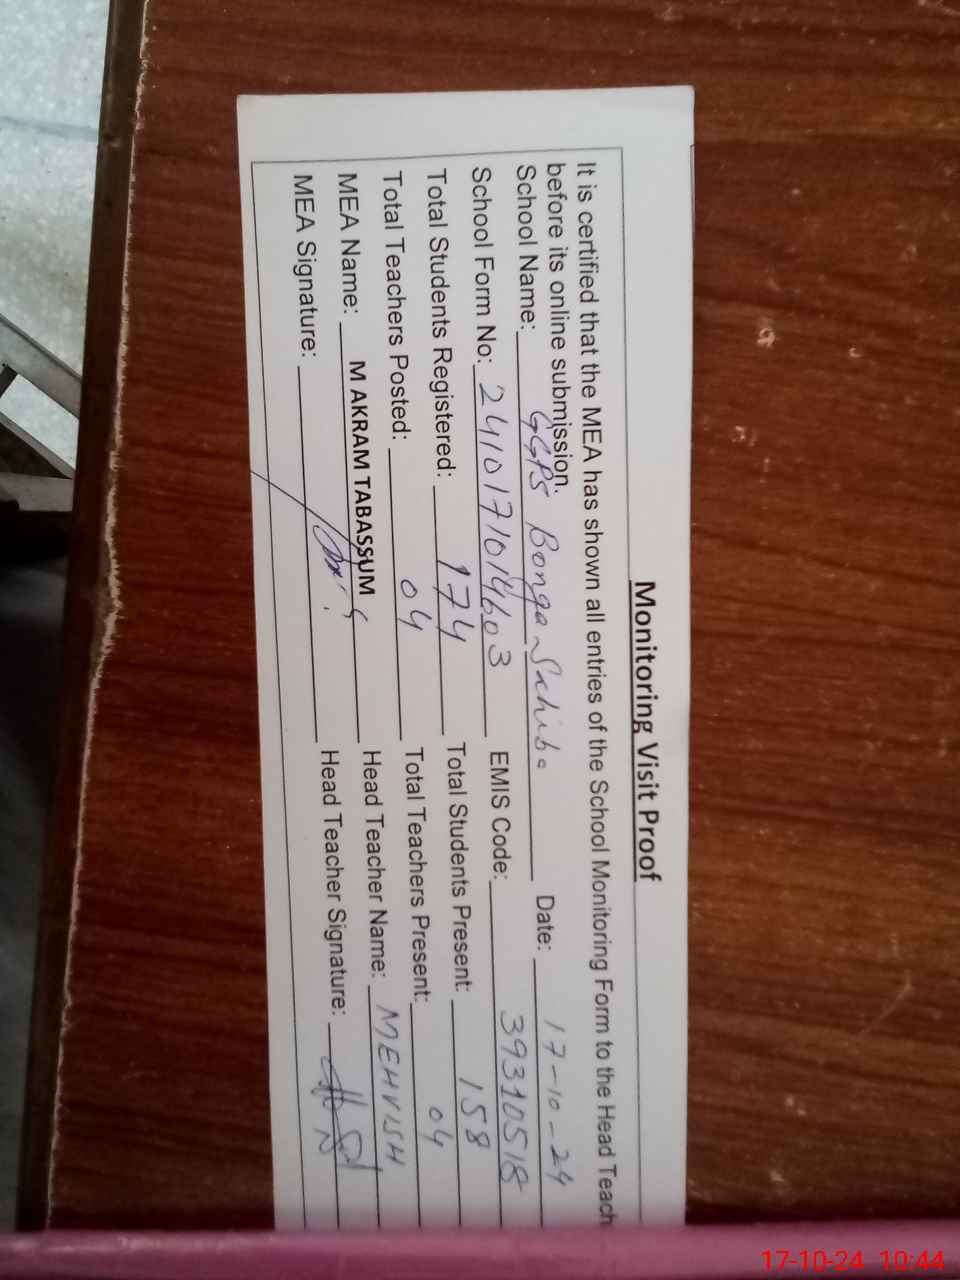 Monitoring Visit Proof
It is certified that the MEA has shown all entries of the School Monitoring Form to the Head Teach
before its online submission.
School Name: GGPS Bonga Sahiba Date: 17-10-24
School Form No: 2410171014603 EMIS Code: 39310518
Total Students Registered: 174 Total Students Present: 158
Total Teachers Posted: 04 Total Teachers Present: 04
MEA Name: M AKRAM TABASSUM Head Teacher Name: MEHVISH
MEA Signature: Head Teacher Signature:
17-10-24 10:44